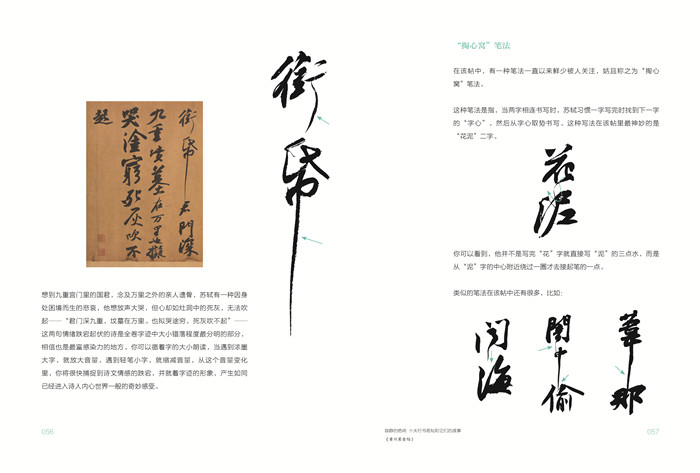 銜帋 君門深
九重墳墓在万里也擬
哭塗窮死灰吹不
起
銜
帋
想到九重宫门里的国君，念及万里之外的亲人遗骨，苏轼有一种因身
处困境而生的悲哀，他想放声大哭，但心却如灶洞中的死灰，无法吹
起——“君门深九重，坟墓在万里。也拟哭途穷，死灰吹不起”——
这两句情绪跌宕起伏的诗是全卷字迹中大小错落程度最分明的部分，
相信也是最富感染力的地方，你可以循着字的大小朗读，当遇到浓墨
大字，就放大音量，遇到轻笔小字，就缩减音量，从这个音量变化
里，你将很快捕捉到诗文情感的跌宕，并就着字迹的形象，产生如同
已经进入诗人内心世界一般的奇妙感受。
056
“掏心窝”笔法
在该帖中，有一种笔法一直以来鲜少被人关注，姑且称之为“掏心
窝”笔法。
这种笔法是指，当两字相连书写时，苏轼习惯一字写完时找到下一字
的“字心”，然后从字心取势书写。这种写法在该帖里最神妙的是
“花泥”二字。
花
泥
你可以看到，他并不是写完“花”字就直接写“泥”的三点水，而是
从“泥”字的中心附近绕过一圈才去接起笔的一点。
类似的笔法在该帖中还有很多，比如：
闻海
闇中偷
葦那
十大行书名帖和它们的故事
《黄州寒食帖》
057